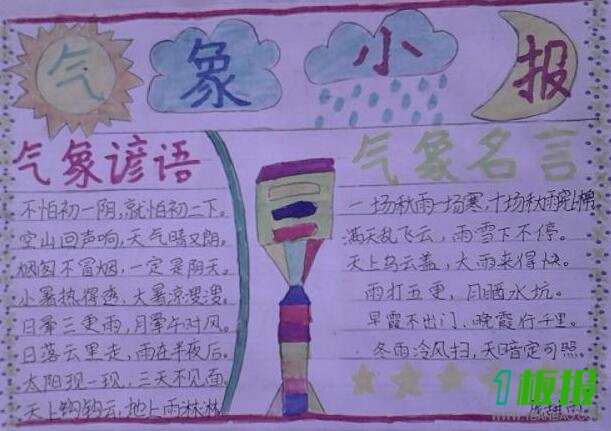 气象小报
气象谚语
不怕初一阴,就怕初二下。
空山回声响,天气晴又朗。
烟囱不冒烟,一定是阴天。
小暑热得透,大暑凉溲溲。
日晕三更雨,月晕午时风。
日落云里走,雨在半夜后。
太阳现一现,三天不见面。
天上钩钩云,地上雨淋淋
气象名言
一场秋雨一场寒,十场秋雨穿上棉。
满天乱飞云,雨雪下不停。
天上乌云盖,大雨来得快。
雨打五更,月晒水坑。
早霞不出门,晚霞行千里。
冬雨冷风扫,天暗定可照。
1板报
WWW.1BANBAO.COM